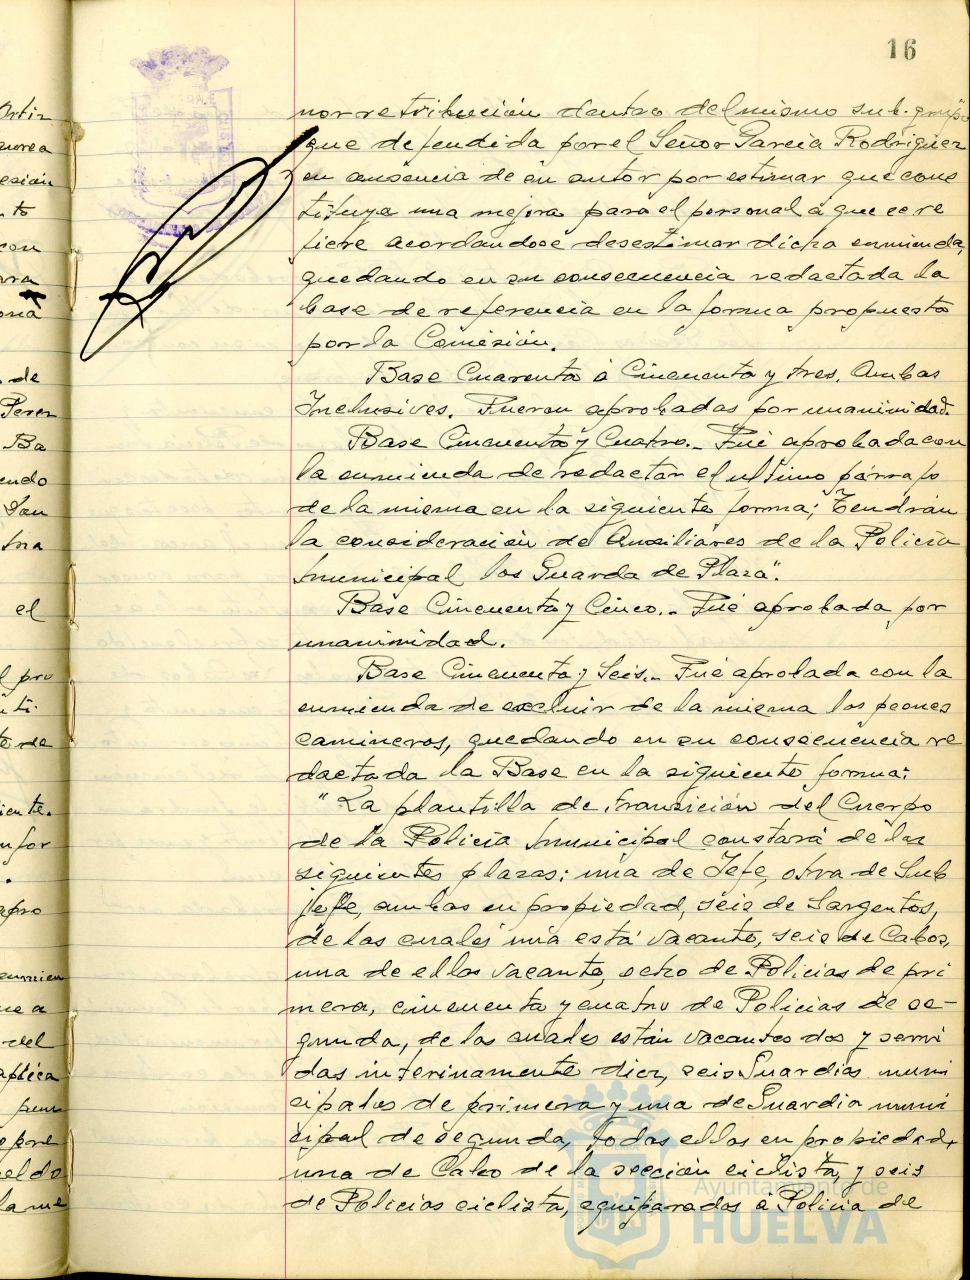 16
nor retribución dentro del mismo sub-grupo
que defendida por el Señor García Rodriguez
en ausencia de su autor por estimar que cons
tituye una mejora para el personal a que se re
fiere acordandose desestimar dicha enmienda,
quedando en su consecuencia redactada la
base de referencia en la forma propuesta
por la Comisión.
Base Cuarenta a Cincuenta y tres, Ambas
Inclusives. Fueron aprobadas por unanimidad.
Base Cincuenta y Cuatro.- Fué aprobada con
la enmienda de redactar el ultimo párrafo
de la misma en la siguiente forma; Tendrán
la consideración de Auxiliares de la Policía
Municipal los Guarda de Plaza".
Base Cincuenta y Cinco.- Fué aprobada por
unanimidad.
Base Cincuenta y Seis.- Fué aprobada con la
enmienda de excluir de la misma los peones
camineros, quedando en su consecuencia re
dactada la Base en la siguiente forma:
"La plantilla de transición del Cuerpo
de la Policía Municipal constará de las
siguientes plazas: una de Jefe, otra de Sub
jefe, ambas en propiedad, séis de Sargentos,
de las cuales una está vacante, seis de Cabos,
una de ellas vacante, ocho de Policias de pri
mera, cincuenta y cuatro de Policias de se-
gunda, de las cuales están vacantes dos y servi
das interinamente diez, seis Guardias muni
cipales de primera y una de Guardia muni
cipal de segunda, todas ellas en propiedad,
una de Cabo de la sección ciclista, y seis
de Policias ciclista, equiparados a Policia de
Ayuntamiento de
HUELVA